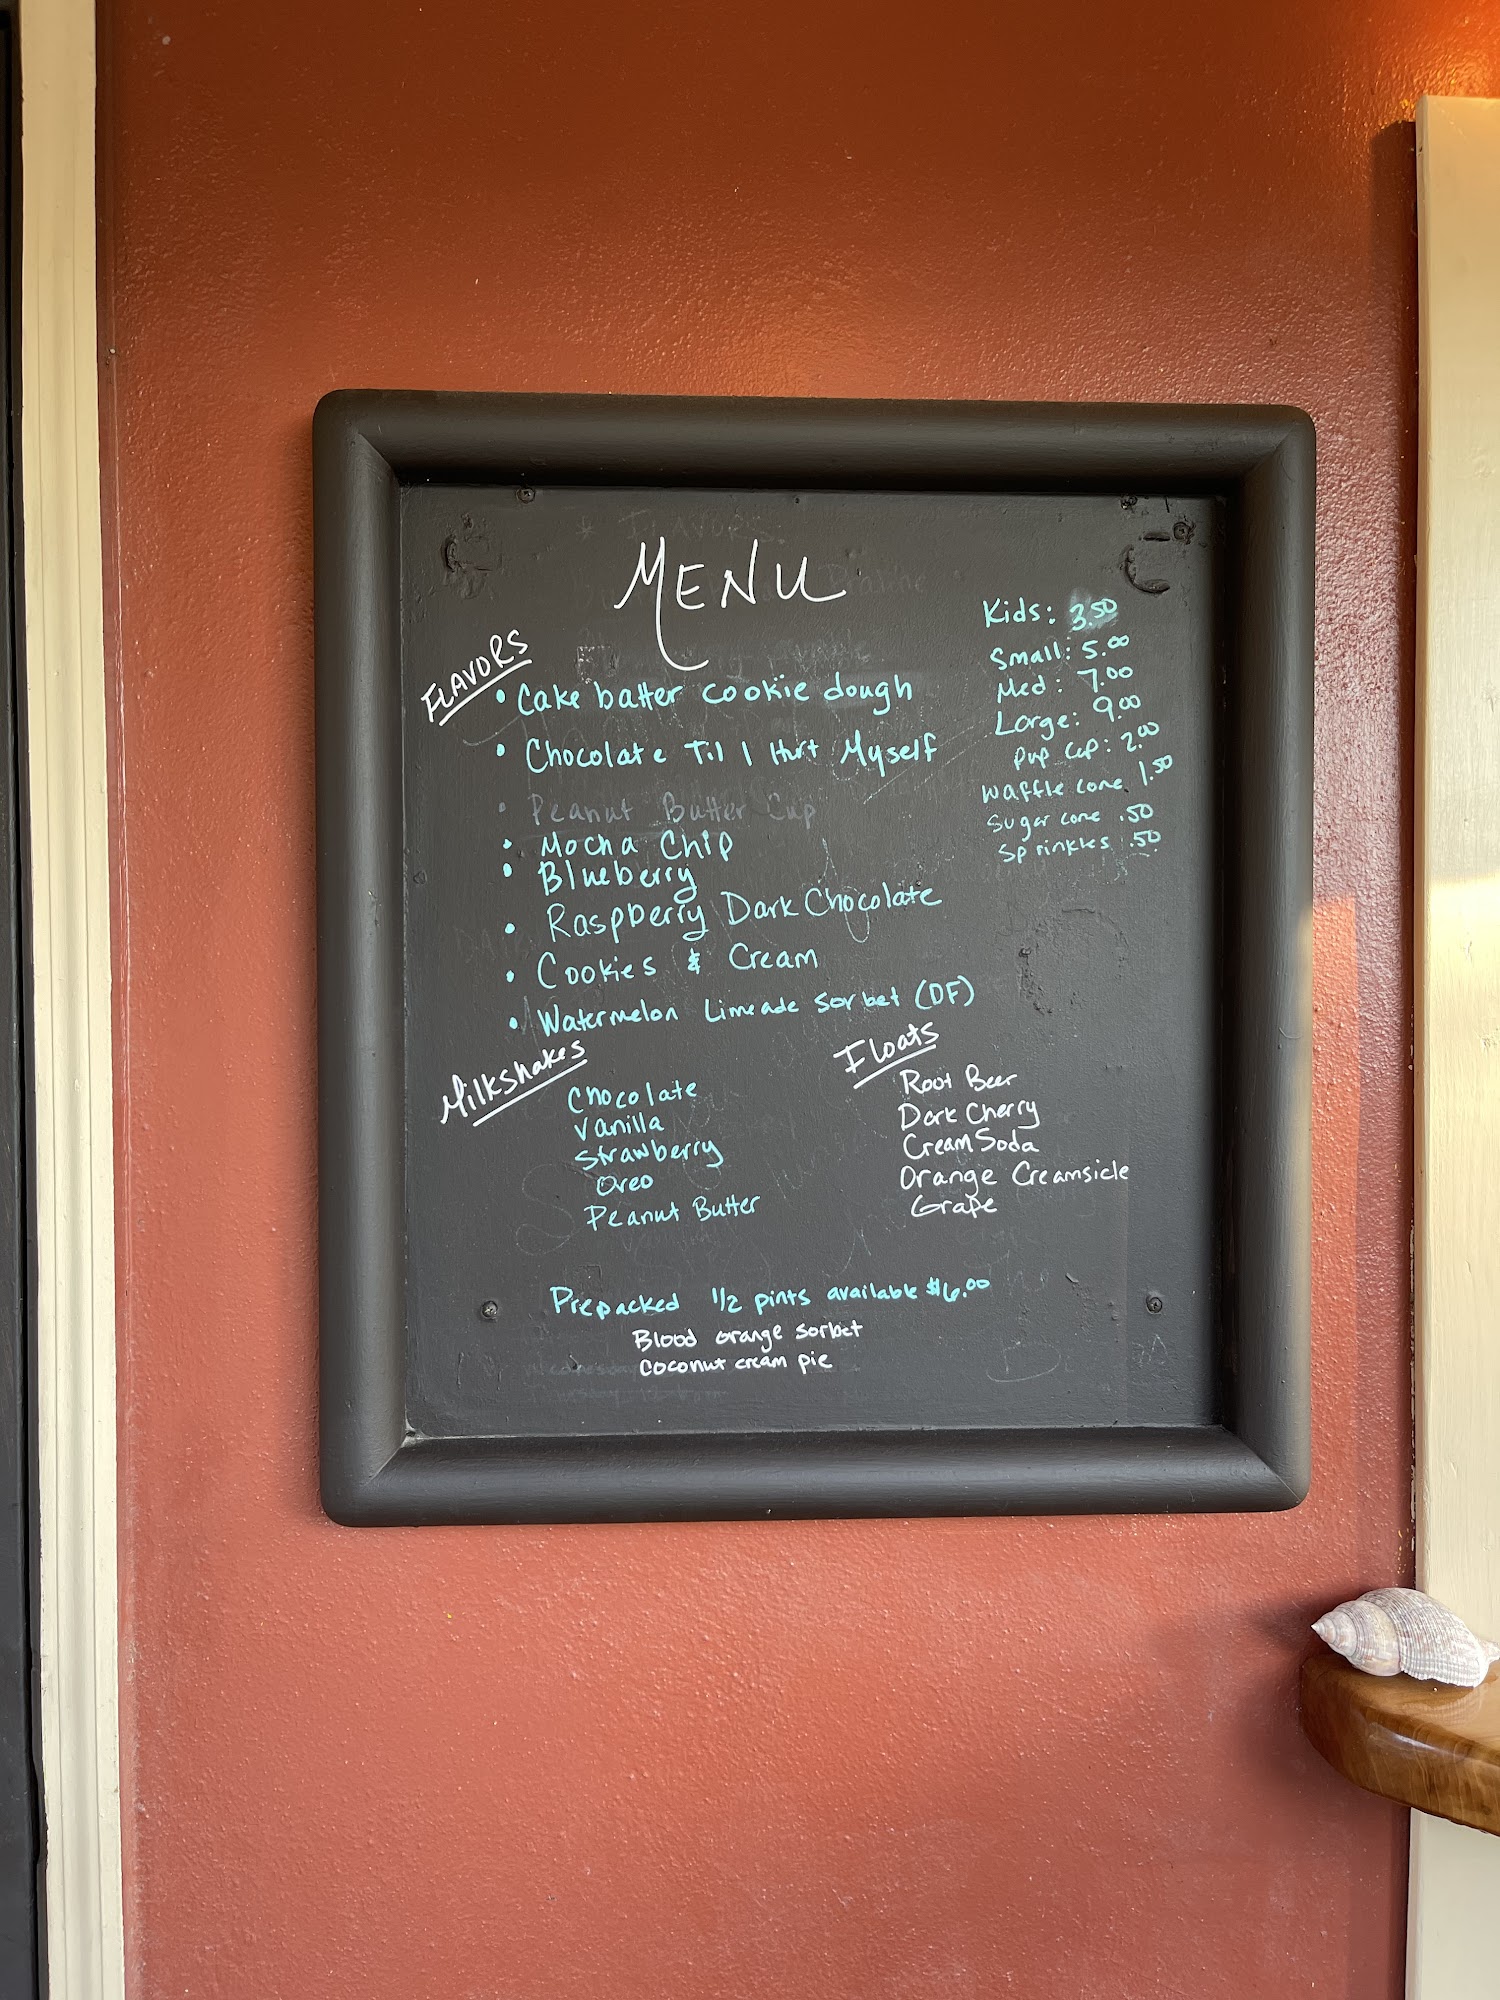 MENU
FLAVORS
• Cake batter cookie dough
• Chocolate Til I Hurt Myself
• Peanut Butter Cup
• Mocha Chip
• Blueberry
• Raspberry Dark Chocolate
• Cookies & Cream
• Watermelon Limeade Sorbet (DF)
Kids: 3.50
Small: 5.00
Med: 7.00
Large: 9.00
Pup Cup: 2.00
Waffle Cone 1.50
Sugar cone .50
Sprinkles .50
Milkshakes
Chocolate
Vanilla
Strawberry
Oreo
Peanut Butter
Floats
Root Beer
Dark Cherry
Cream Soda
Orange Creamsicle
Grape
Prepacked 1/2 pints available $6.00
Blood orange sorbet
Coconut cream pie